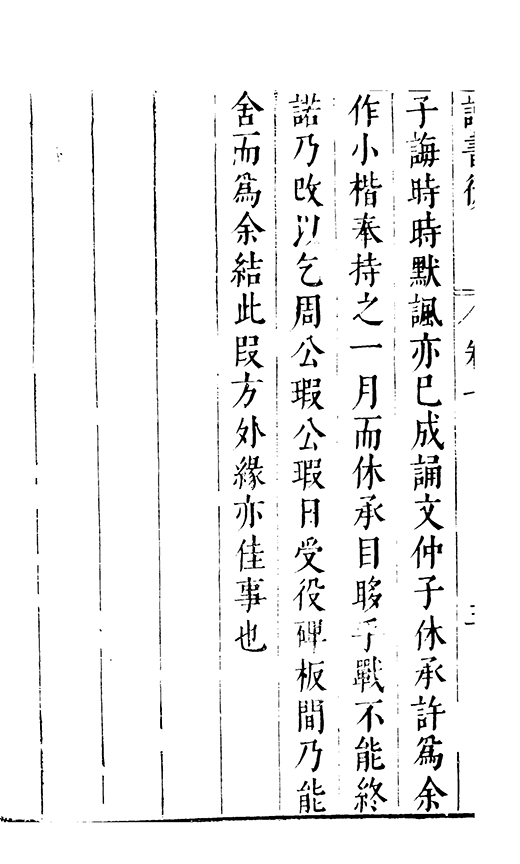 讀書後 卷一
子誨時時默諷亦巳成誦文仲子休承許爲余
作小楷奉持之一月而休承目眵手戰不能終
諾乃改以乞周公瑕公瑕日受役碑板間乃能
舍而爲余結此段方外緣亦佳事也